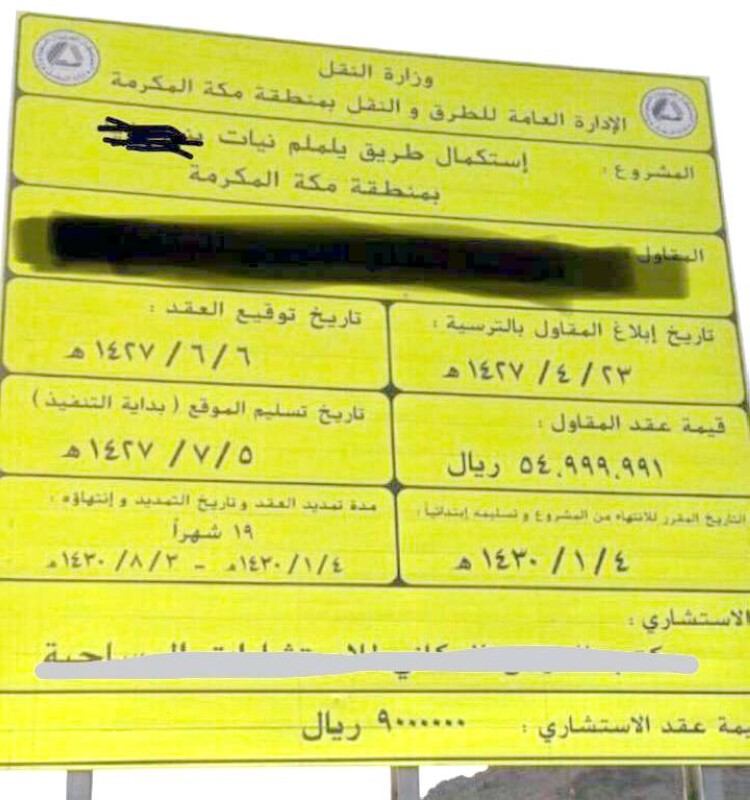 وزارة النقل
الإدارة العامة للطرق و النقل بمنطقة مكة المكرمة
المشروع : إستكمال طريق يلملم نيات
بمنطقة مكة المكرمة
المقاول
تاريخ إبلاغ المقاول بالترسية :
٢٣ / ٤ / ١٤٢٧ هـ
تاريخ توقيع العقد :
٦ / ٦ / ١٤٢٧ هـ
قيمة عقد المقاول :
٥٤,٩٩٩,٩٩١ ريال
تاريخ تسليم الموقع ( بداية التنفيذ )
٥ / ٧ / ١٤٢٧ هـ
التاريخ المقرر للانتهاء من المشروع و تسليمه إبتدائياً :
٤ / ١ / ١٤٣٠ هـ
مدة تمديد العقد و تاريخ التمديد و إنتهاؤه :
١٩ شهراً
٤ / ١ / ١٤٣٠هـ - ٣ / ٨ / ١٤٣٠هـ
الاستشاري :
يمة عقد الاستشاري : ٩٠٠٠٠٠٠ ريال